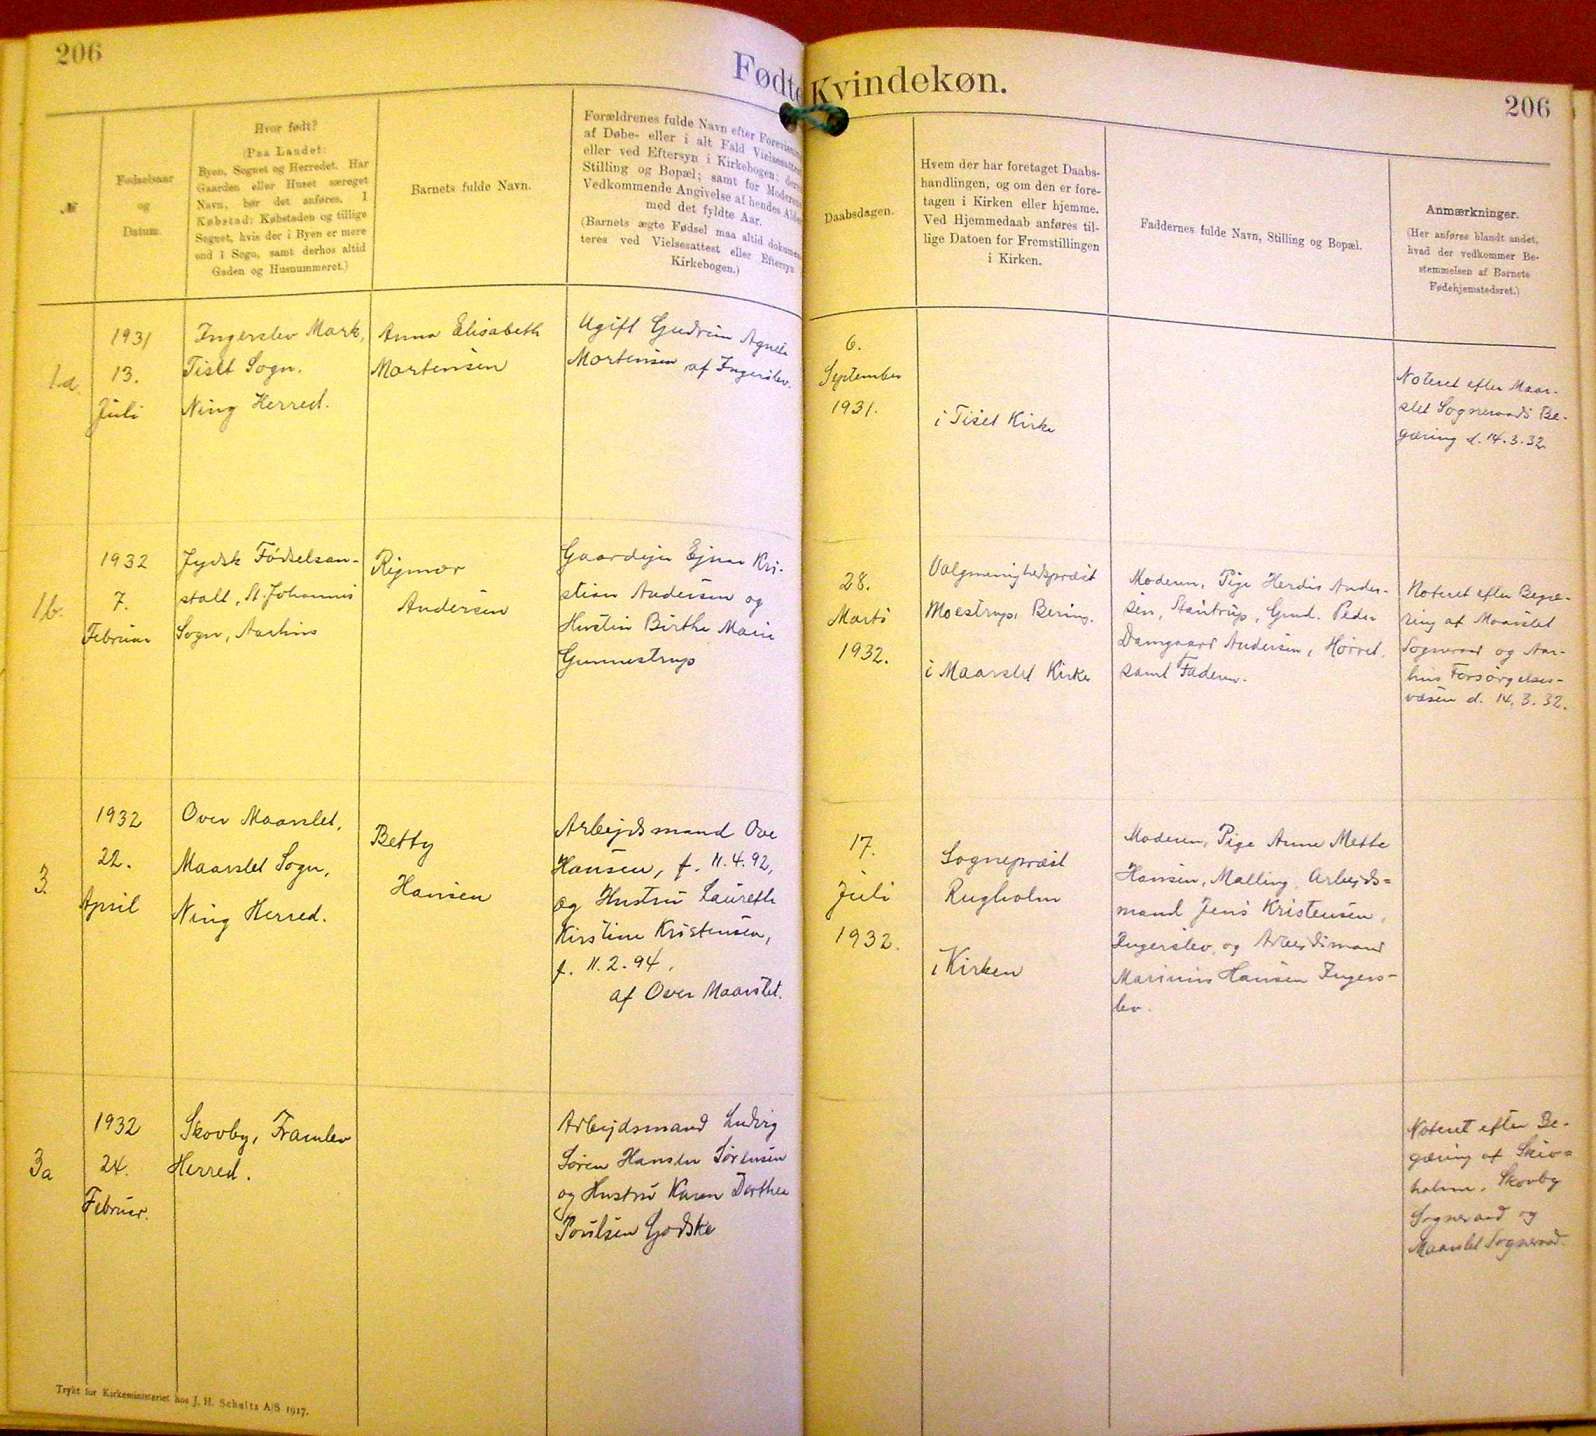 206
Født
Kvindekøn.
206
№
Fødselsaar
og
Datum.
Hvor født?
(Paa Landet:
Byen, Sognet og Herredet. Har
Gaarden eller Huset særeget
Navn, bør det anføres. I
Købstad: Købstaden og tillige
Sognet, hvis der i Byen er mere
end 1 Sogn, samt derhos altid
Gaden og Husnummeret.)
Barnets fulde Navn.
Forældrenes fulde Navn efter
af Døbe- eller i alt Fald
eller ved Eftersyn i Kirkebogen;
Stilling og Bopæl; samt for Moderens
Vedkommende Angivelse af hendes Alder
med det fyldte Aar.
(Barnets ægte Fødsel maa altid
teres ved Vielsesattest eller Eftersyn
Kirkebogen.)
Daabsdagen.
Hvem der har foretaget Daabs-
handlingen, og om den er fore-
tagen i Kirken eller hjemme.
Ved Hjemmedaab anføres til-
lige Datoen for Fremstillingen
i Kirken.
Faddernes fulde Navn, Stilling og Bopæl.
Anmærkninger.
(Her anføres blandt andet,
hvad der vedkommer Be-
stemmelsen af Barnets
Fødehjemstedsret.)
1a
1931
13.
Juli
Ingerslev Mark,
Tiset Sogn.
Ning Herred.
Anna Elisabeth
Mortensen
Ugift Gudrun Agnete
Mortensen af Ingerslev.
6.
September
1931.
i Tiset Kirke
Noteret efter Maar-
slet Sogneraads Be-
gæring d. 14.3.32
1b.
1932
7.
Februar
Jydsk Fødselsan-
stalt, St. Johannis
Sogn, Aarhus
Rigmor
Andersen
Gaardejer Ejnar Kri-
stian Andersen og
Hustru Birthe Marie
Gunnestrup
28.
Marts
1932.
Valgmenighedspræst
Moestrup, Bering.
i Maarslet Kirke
Moderen, Pige Herdis Ander-
sen, Stautrup, Gmd. Peder
Damgaard Andersen, Hørret.
samt Faderen.
Noteret efter Begæ-
ring af Maarslet
Sogneraad og Aar-
hus Forsørgelses-
væsen d. 14.3.32.
3.
1932
22.
April
Over Maarslet,
Maarslet Sogn,
Ning Herred.
Betty
Hansen
Arbejdsmand Ove
Hansen, f. 11.4.92,
og Hustru Laureth
Kirstine Kristensen,
f. 11.2.94.
af Over Maarslet.
17.
Juli
1932.
Sognepræst
Rugholm
i Kirken
Moderen, Pige Anne Mette
Hansen, Malling, Arbejds=
mand Jens Kristensen,
Ingerslev, og Arbejdsmand
Marinus Hansen Ingers-
lev.
3a
1932
24.
Februar.
Skovby, Framlev
Herred.
Arbejdsmand Ludvig
Søren Hansen Sørensen
og Hustru Karen Dorthea
Poulsen Godske
Noteret efter Be-
gæring af Skiv=
holme, Skovby
Sogneraad og
Maarslet Sogneraad.
Trykt for Kirkeministeriet hos J. H. Schultz A/S 1917.